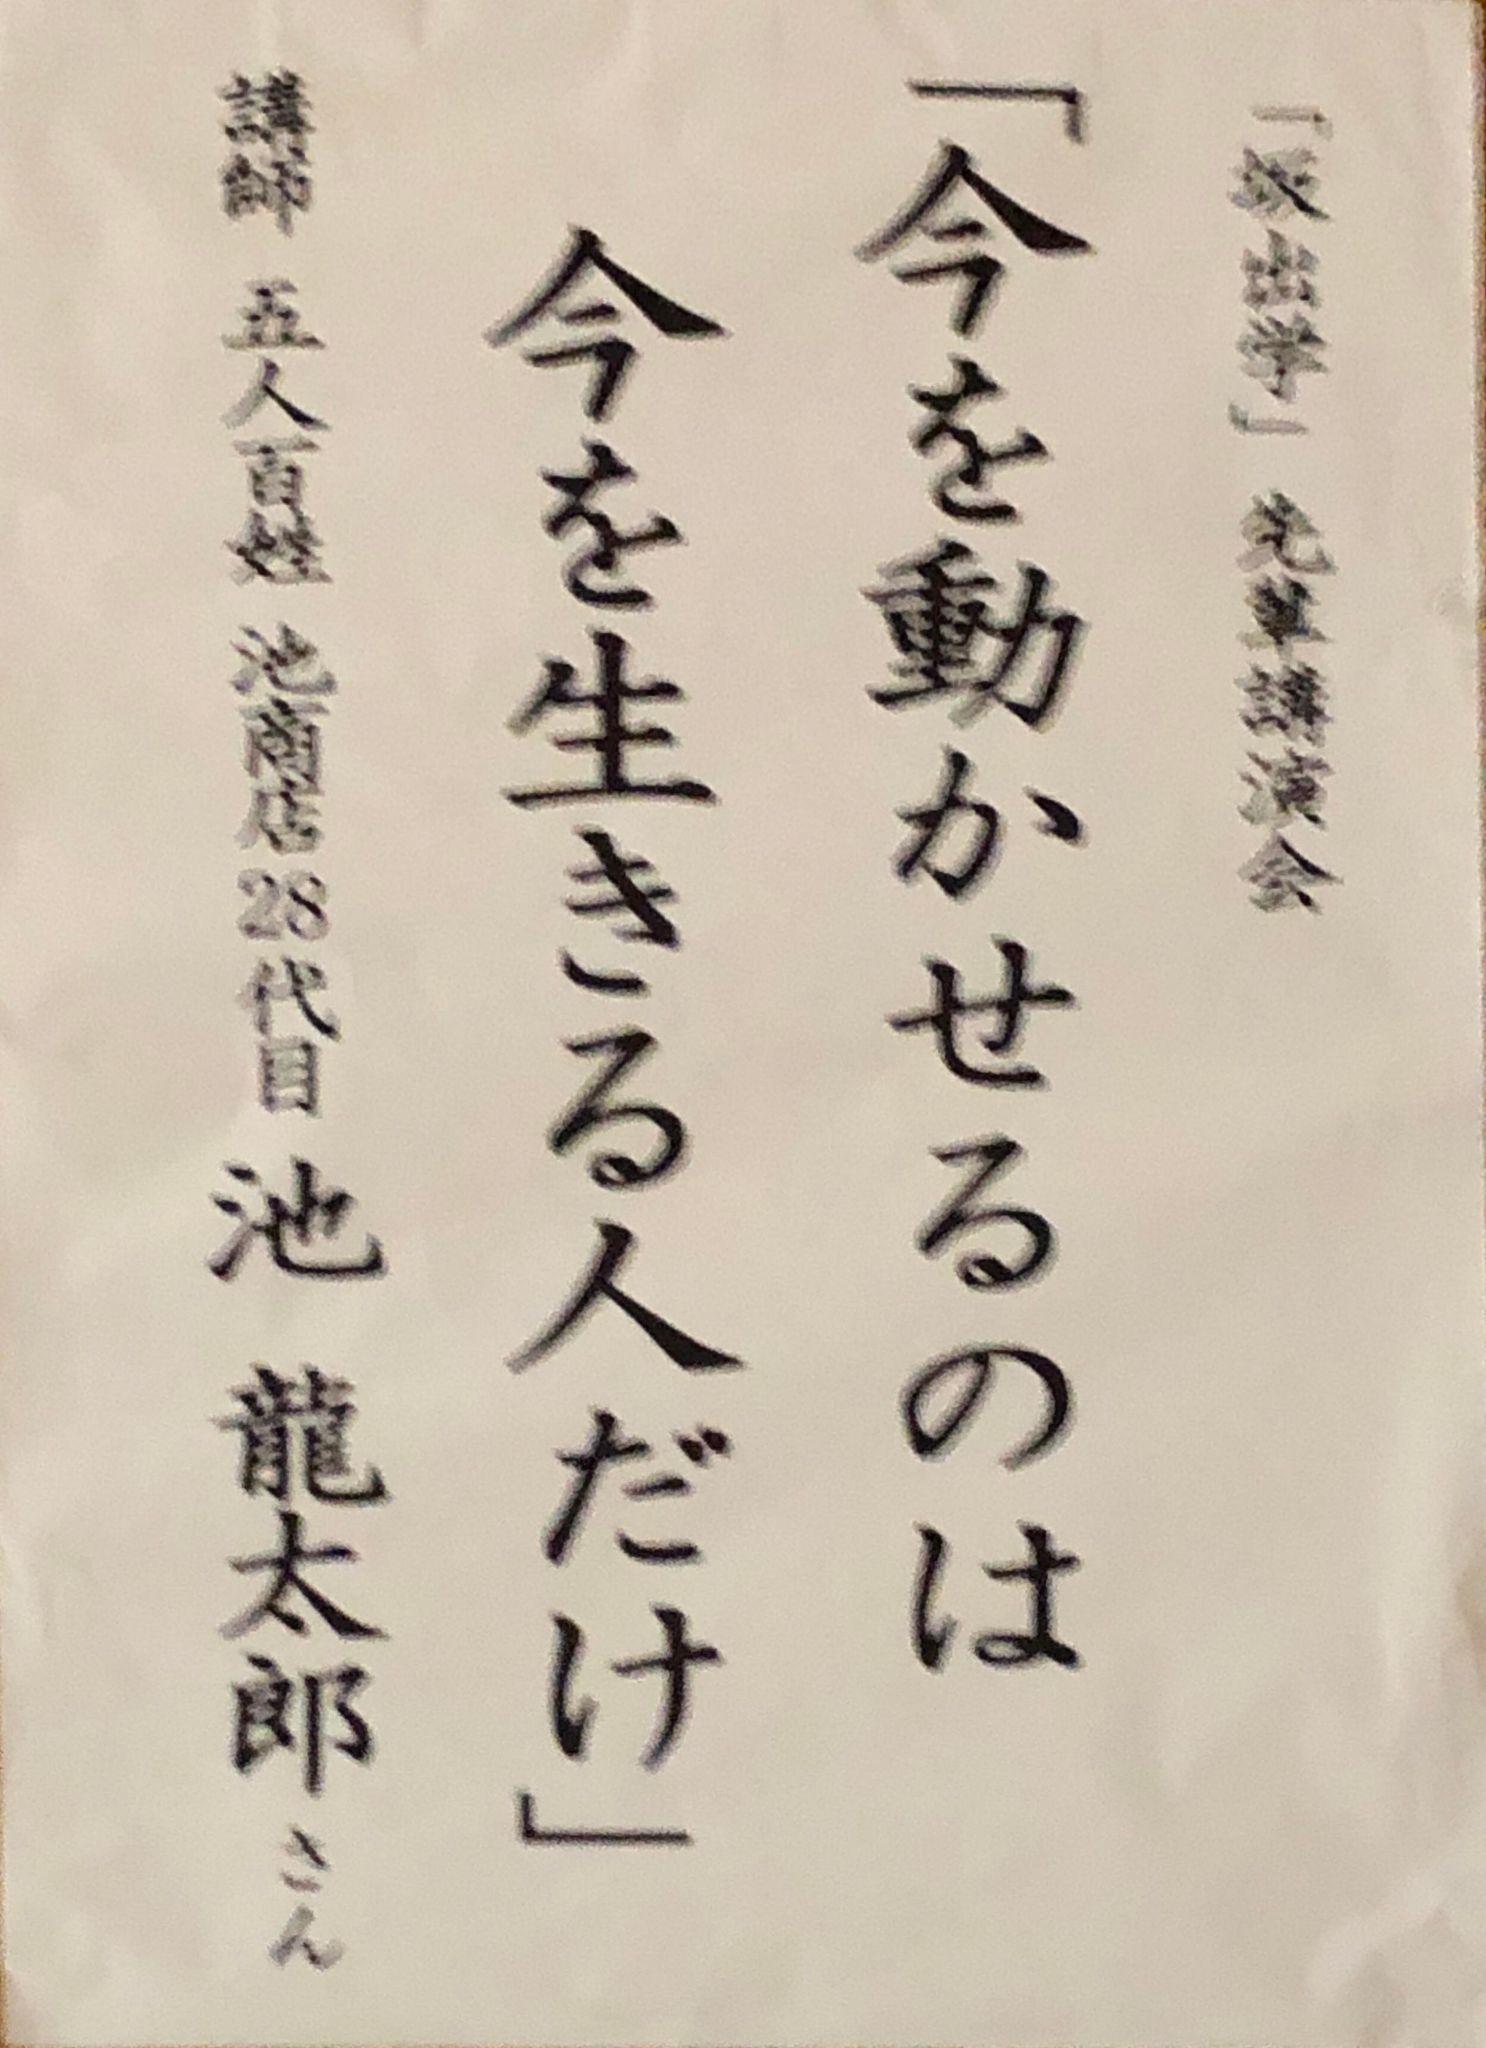 「坂出学」先輩講演会
「今を動かせるのは
今を生きる人だけ」
講師 五人百姓 池商店28代目 池 龍太郎さん